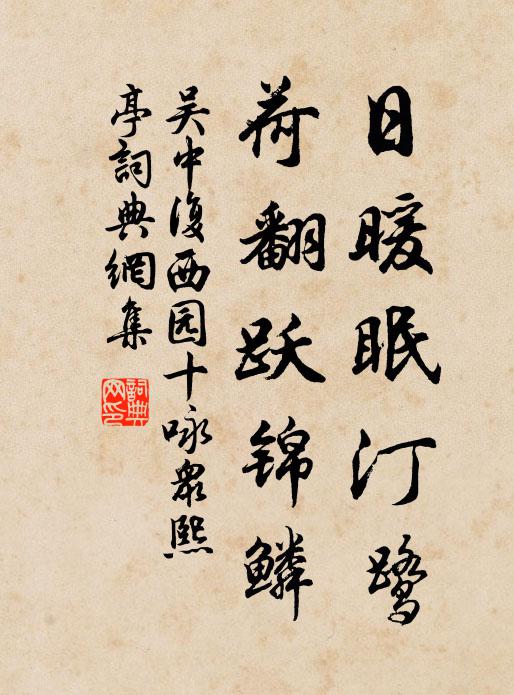 日暖眠汀鹭
荷翻跃锦鳞
吴中复西园十咏众熙
亭詞典網集
詞典
网印